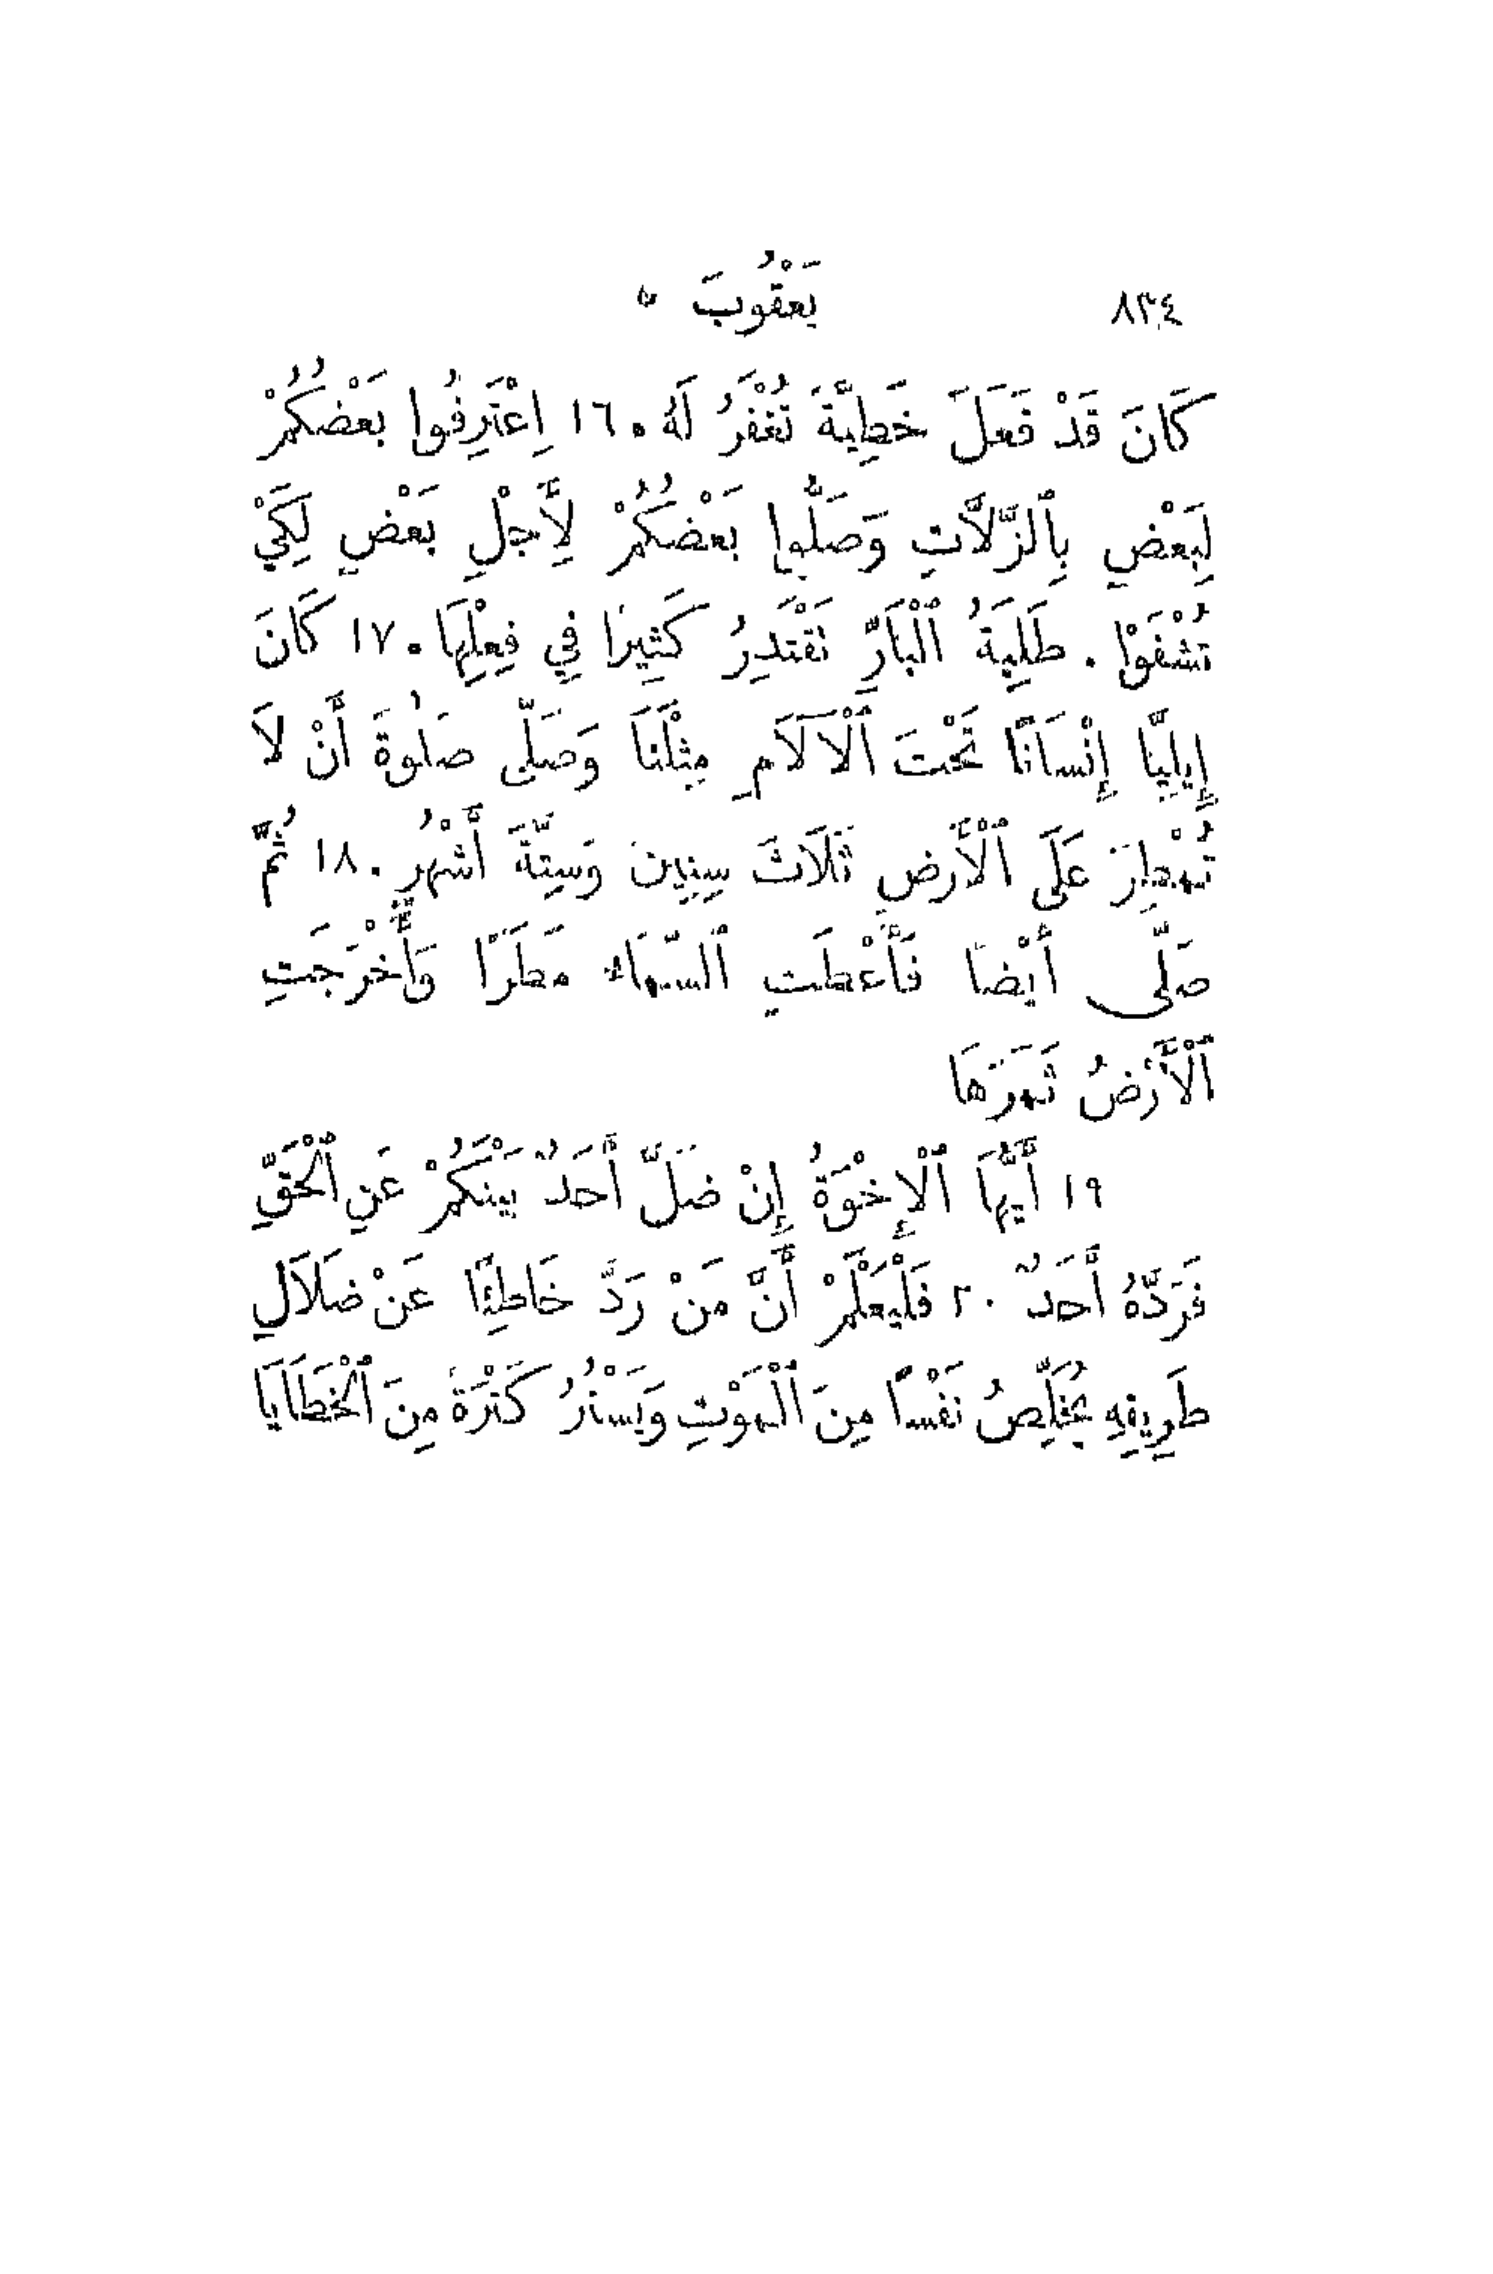 ٨٣٤ يَعْقُوبَ ٥
كَانَ قَدْ فَعَلَ خَطِيَّةً تُغْفَرُ لَهُ. ١٦ اِعْتَرِفُوا بَعْضُكُمْ
لِبَعْضٍ بِٱلزَّلَّاتِ وَصَلُّوا بَعْضُكُمْ لِأَجْلِ بَعْضٍ لِكَيْ
تُشْفَوْا. طَلِبَةُ ٱلْبَارِّ تَقْتَدِرُ كَثِيرًا فِي فِعْلِهَا. ١٧ كَانَ
إِيلِيَّا إِنْسَانًا تَحْتَ ٱلْآلَامِ مِثْلَنَا وَصَلَّى صَلٰوةً أَنْ لَا
تُمْطِرَ عَلَى ٱلْأَرْضِ ثَلَاثَ سِنِينَ وَسِتَّةَ أَشْهُرٍ. ١٨ ثُمَّ
صَلَّى أَيْضًا فَأَعْطَتِ ٱلسَّمَاءُ مَطَرًا وَأَخْرَجَتِ
ٱلْأَرْضُ ثَمَرَهَا
١٩ أَيُّهَا ٱلْإِخْوَةُ إِنْ ضَلَّ أَحَدٌ بَيْنَكُمْ عَنِ ٱلْحَقِّ
فَرَدَّهُ أَحَدٌ ٢٠ فَلْيَعْلَمْ أَنَّ مَنْ رَدَّ خَاطِئًا عَنْ ضَلَالِ
طَرِيقِهِ يُخَلِّصُ نَفْسًا مِنَ ٱلْمَوْتِ وَيَسْتُرُ كَثْرَةً مِنَ ٱلْخَطَايَا